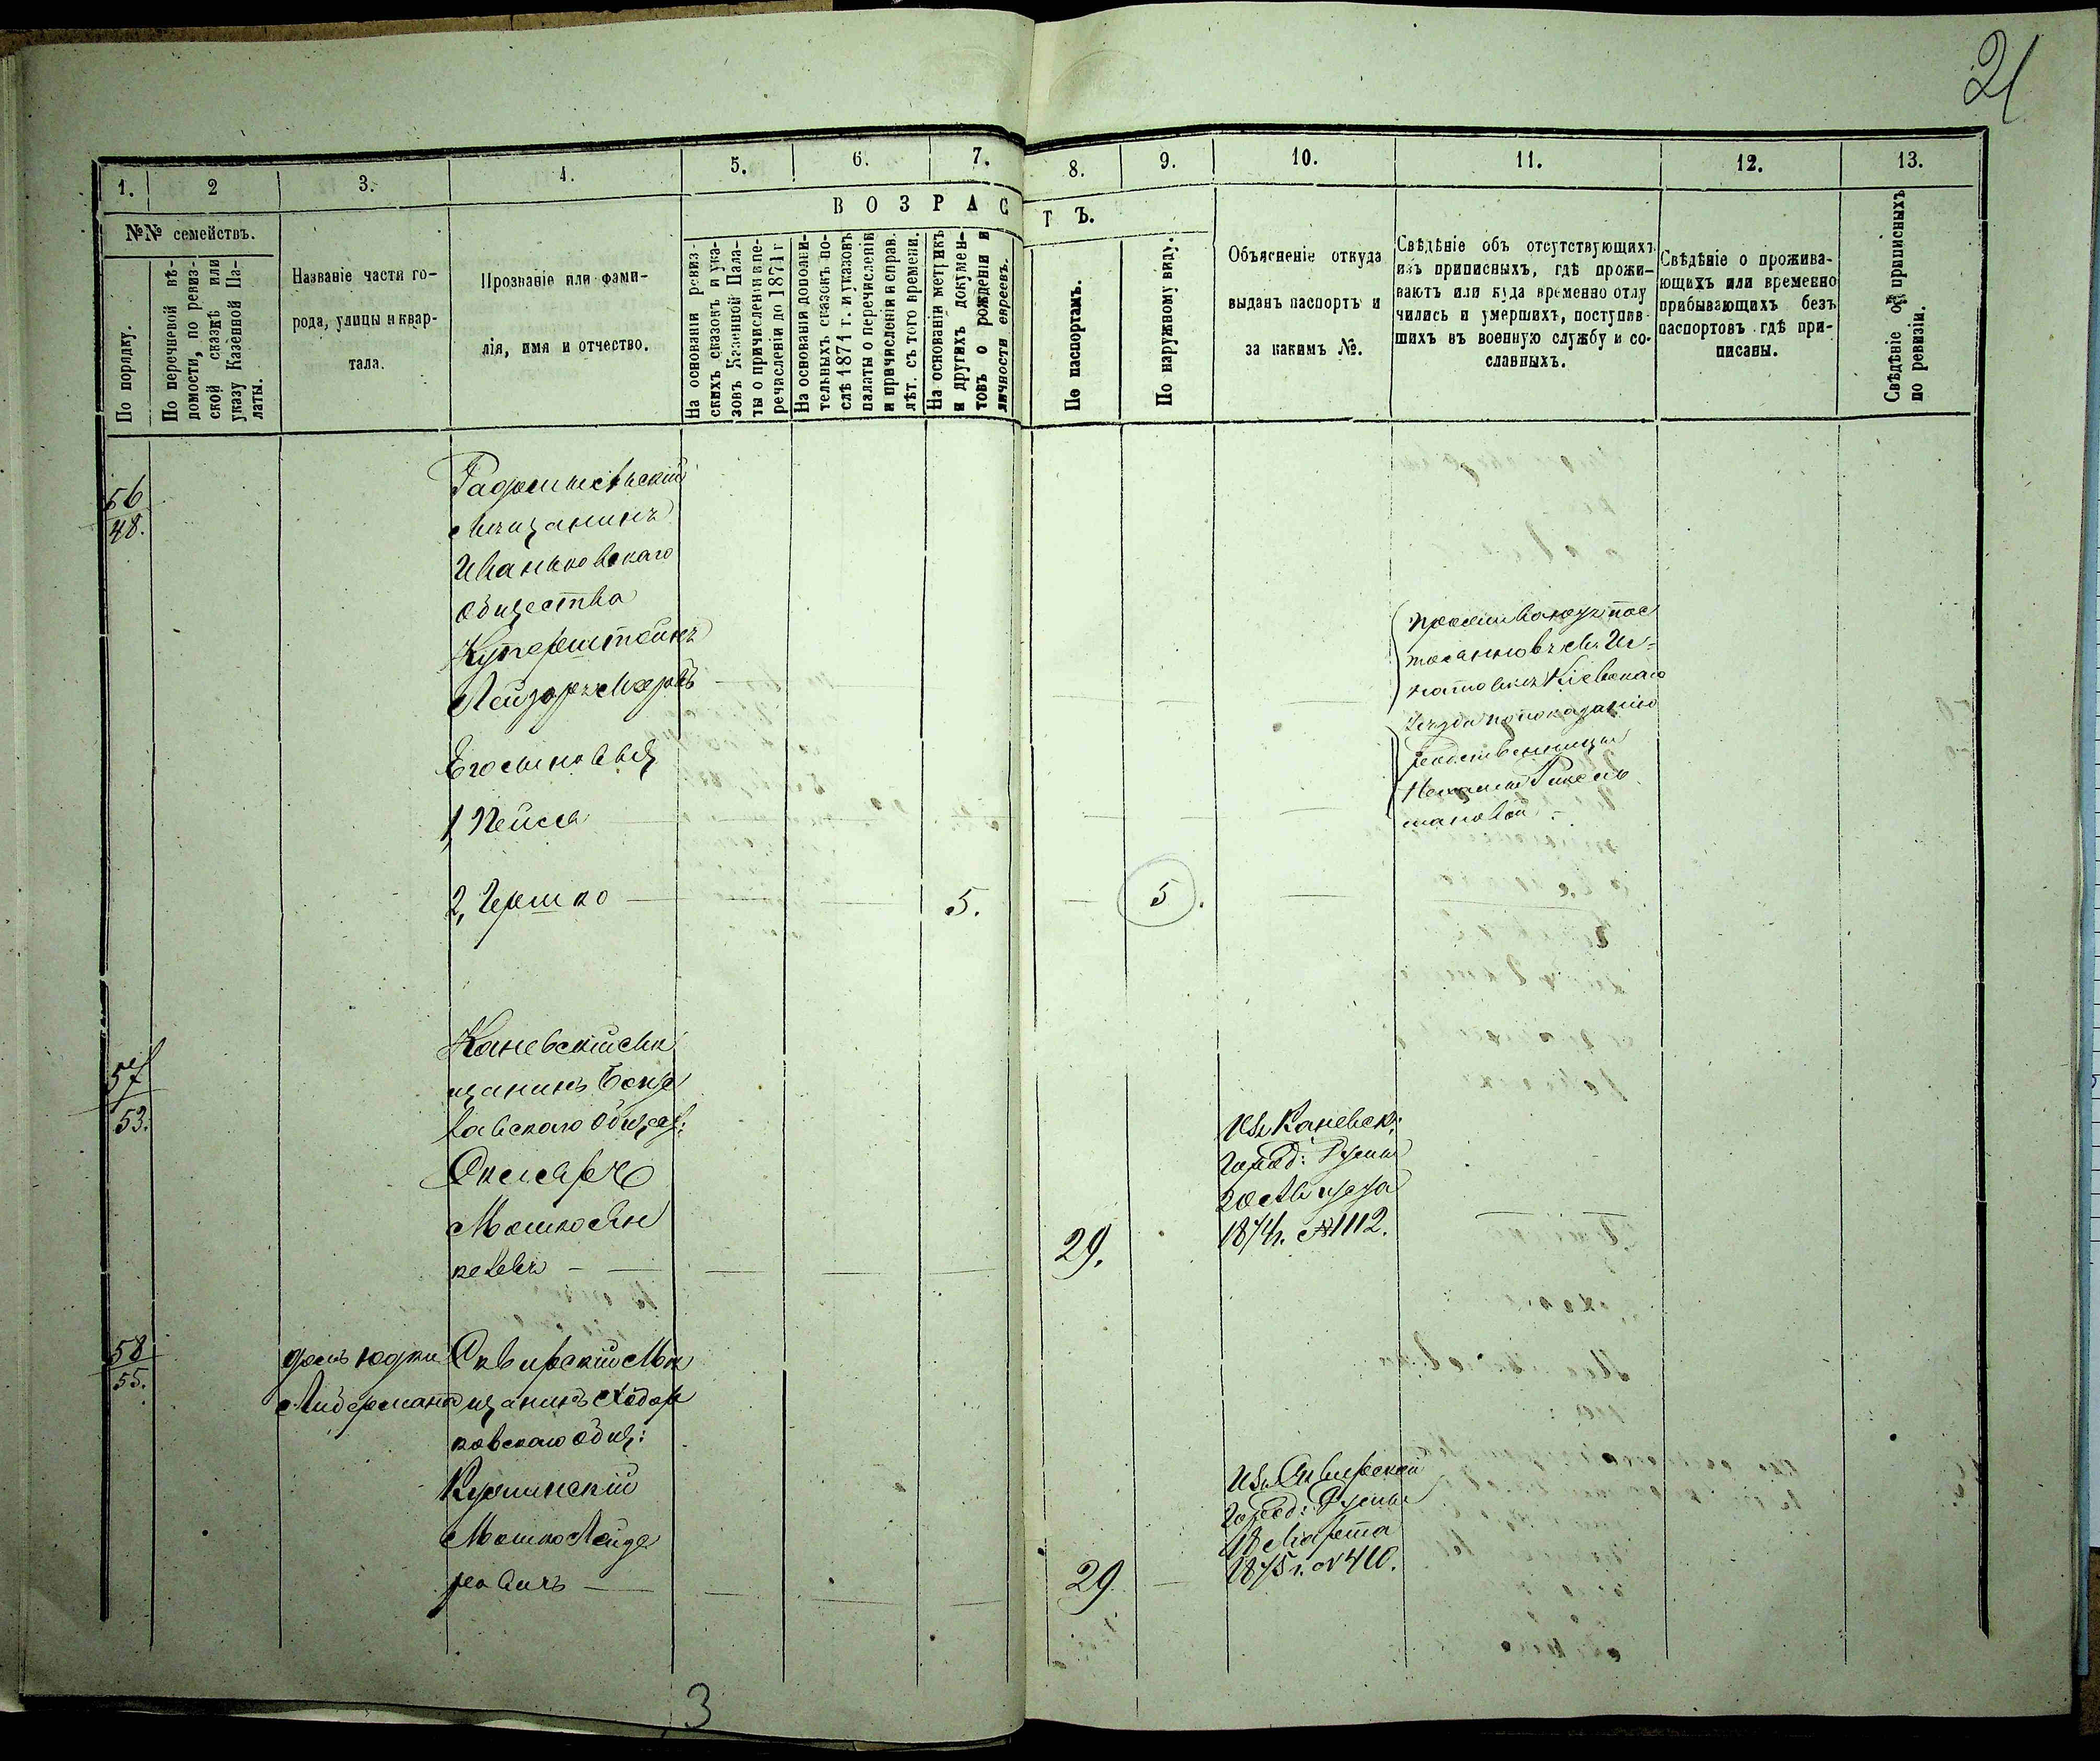 21
1. 2 3. 4. 5. 6. 7. 8. 9. 10. 11. 12. 13.
В О З Р А С Т Ъ.
№№ семействъ.
По порядку.
По перечневой вѣ-
домости, по ревиз-
ской сказкѣ или
указу Казенной Па-
латы.
Названіе части го-
рода, улицы и квар-
тала.
Прозваніе или фами-
лія, имя и отчество.
На основаніи ревиз-
скихъ сказокъ и ука-
зовъ Казенной Пала-
ты о причисленіи и пе-
речисленіи до 1871 г
На основаніи дополни-
тельныхъ сказокъ по-
слѣ 1871 г. и указовъ
палаты о перечисленіи
и причисленіи и справ.
лѣт. съ того времени.
На основаніи метрикъ
и другихъ докумен-
товъ о рожденіи и
личности евреевъ.
По паспортамъ.
По наружному виду.
Объясненіе откуда
выданъ паспортъ и
за какимъ №.
Свѣдѣніе объ отсутствующихъ
изъ приписныхъ, гдѣ прожи-
ваютъ или куда временно отлу
чились и умершихъ, поступив-
шихъ въ военную службу и со-
славныхъ.
Свѣдѣніе о прожива-
ющихъ или временно
прибывающихъ безъ
паспортовъ гдѣ при-
писаны.
Свѣдѣніе о приписныхъ
по ревизіи.
56
48.
Радомысльскій
Мѣщанинъ
Иваньковскаго
Общества
Куперштейнъ
Лейзоръ
Его сыновья
1, Пейсса
2, Гершко 5. 5.
проживаютъ пос
тоянно въ м. Иг-
натовкѣ Кіевскаго
Уѣзда по показанію
родственницы
57
53.
Каневскій мѣ
щанинъ
Общест:
Мошко Ян
келевъ 29.
Изъ Каневск:
Город: Думы
20
1874 г. № 1112.
58
55.
домъ Юдки
Либермана
Сквирскій Мѣ
щанинъ Ходор
ковскаго Общ:
Мошко Лейзе
ровичъ 29
Изъ Сквирской
Город: Думы
18 Марта
1875 г. № 410.
3